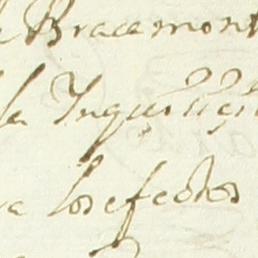 Bracamont
la Inquissi
los efectos